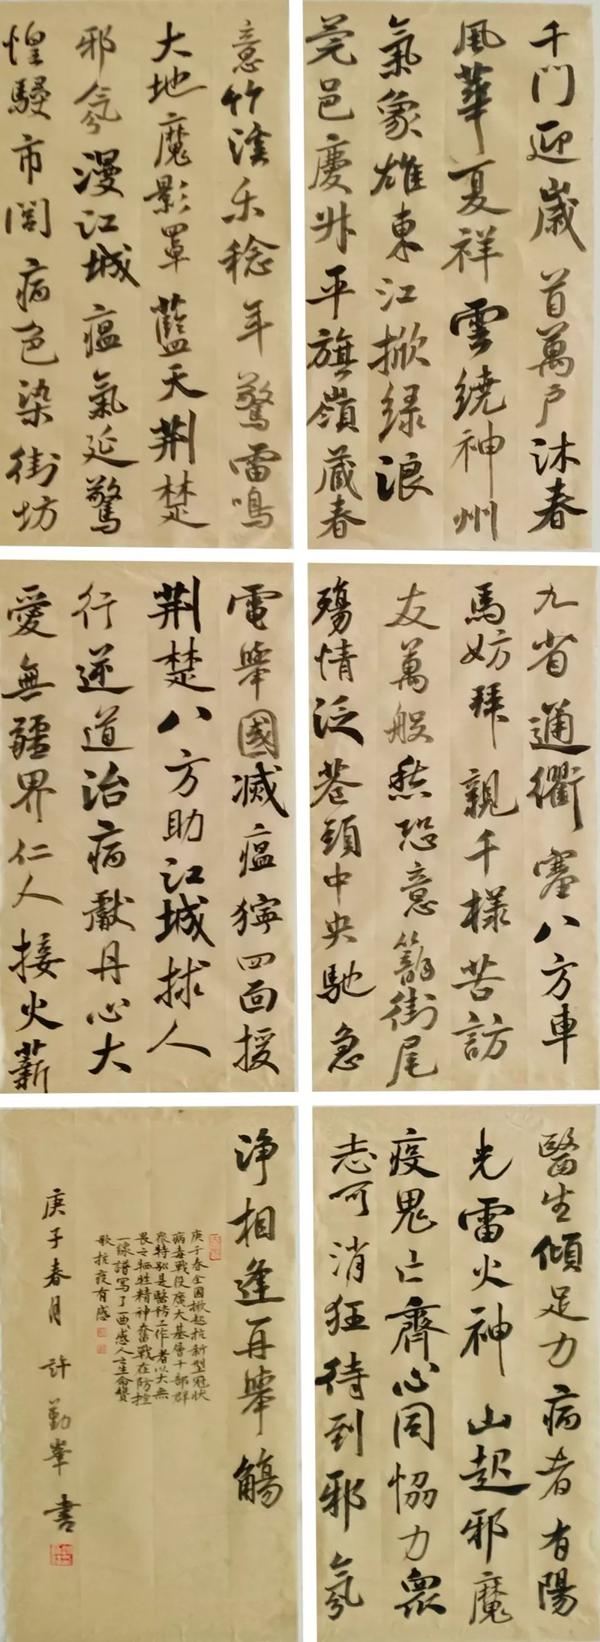 千门迎歲首萬户沐春
風華夏祥雲繞神州
氣象雄東江掀绿浪
莞邑慶升平旗嶺蔵春
意竹溪乐稔年驚雷鳴
大地魔影罩藍天荆楚
邪氛漫江城瘟氣延驚
惶騷市閭病色染街坊
九省通衢塞八方車
馬妨拜親千樣苦訪
友萬般愁恐意籠街尾
殤情泛巷頭中央馳急
電舉國滅瘟獰四面援
荆楚八方助江城捄人
行逆道治病獻丹心大
愛無疆界仁人接火薪
醫生傾足力病者有陽
光雷火神山起邪魔
疫鬼亡齊心同協力衆
志可消狂待到邪氛
净相逢再舉觴
庚子春全国掀起抗新型冠状
病毒戰役廣大基層干部群
衆特别是醫務工作者以大無
畏之牺牲精神奮戰在防控
一線譜写了一曲感人生命贊
歌抗疫有感
庚子春月許勤峯書